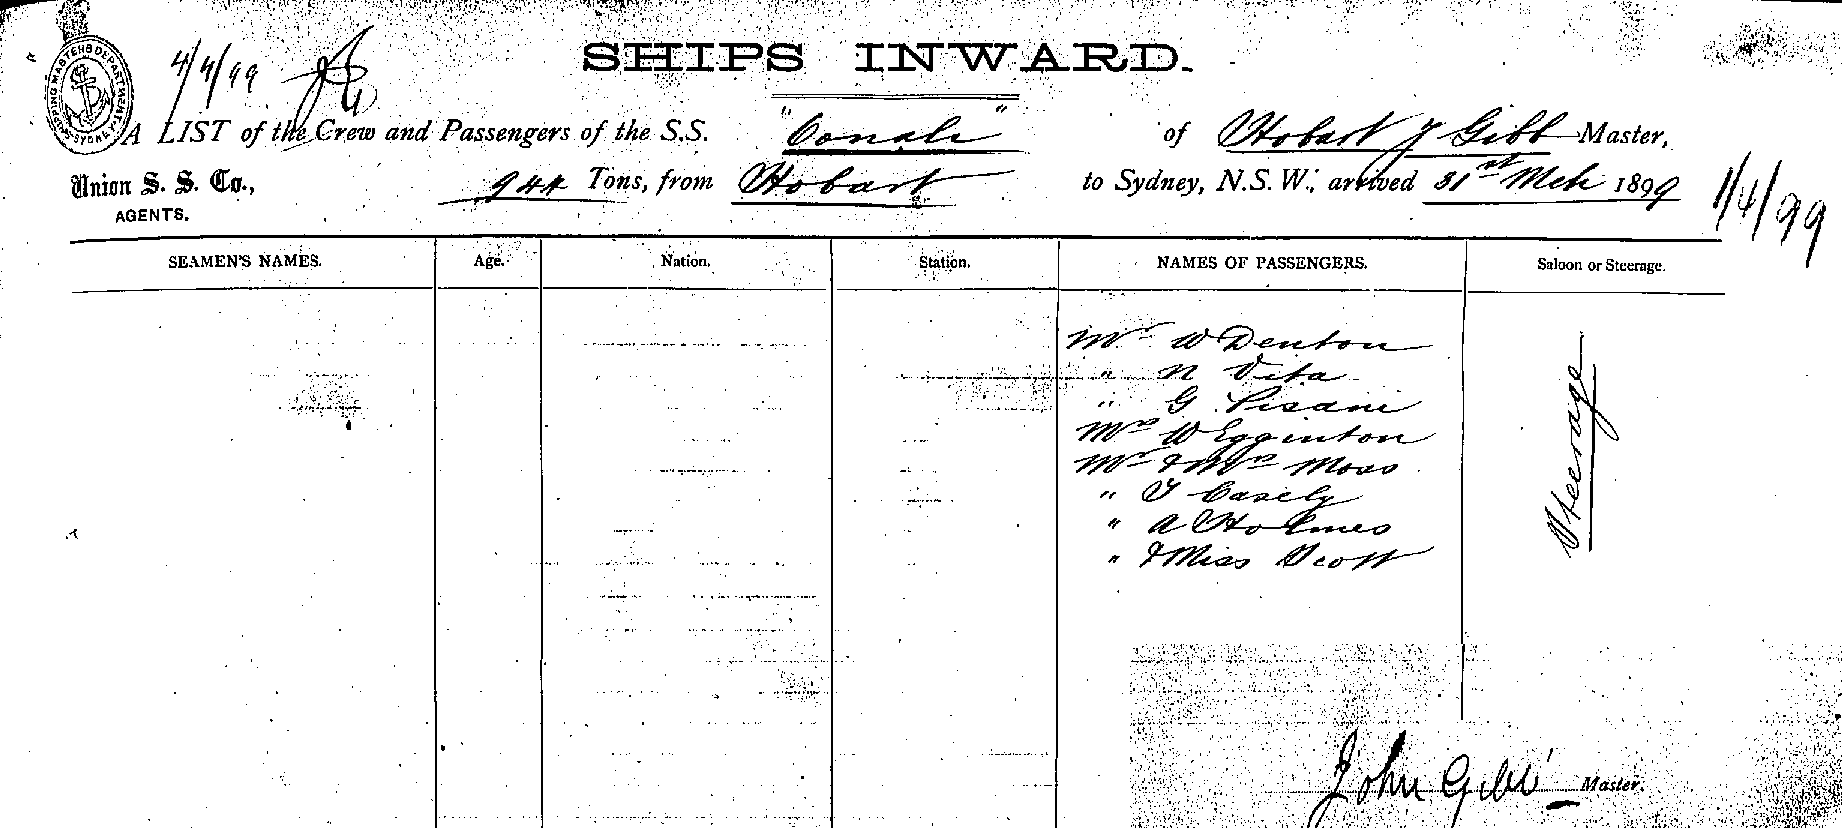 SHIPPING MASTERS DEPARTMENT SYDNEY
4/4/99
SHIPS INWARD.
A LIST of the Crew and Passengers of the S.S. "Oonah" of Hobart J Gibb Master,
Union S. S. Co., 944 Tons, from Hobart to Sydney, N.S.W., arrived 31st Mch 1899
1/4/99
AGENTS.
SEAMEN'S NAMES. Age. Nation. Station. NAMES OF PASSENGERS. Saloon or Steerage.
Mr W Denton
" N Vita
" G Pisani
Mrs W Egginton
Mr & Mrs Moss
" T Casely
" A Holmes
" & Miss Scott
Steerage
John Gibb Master.